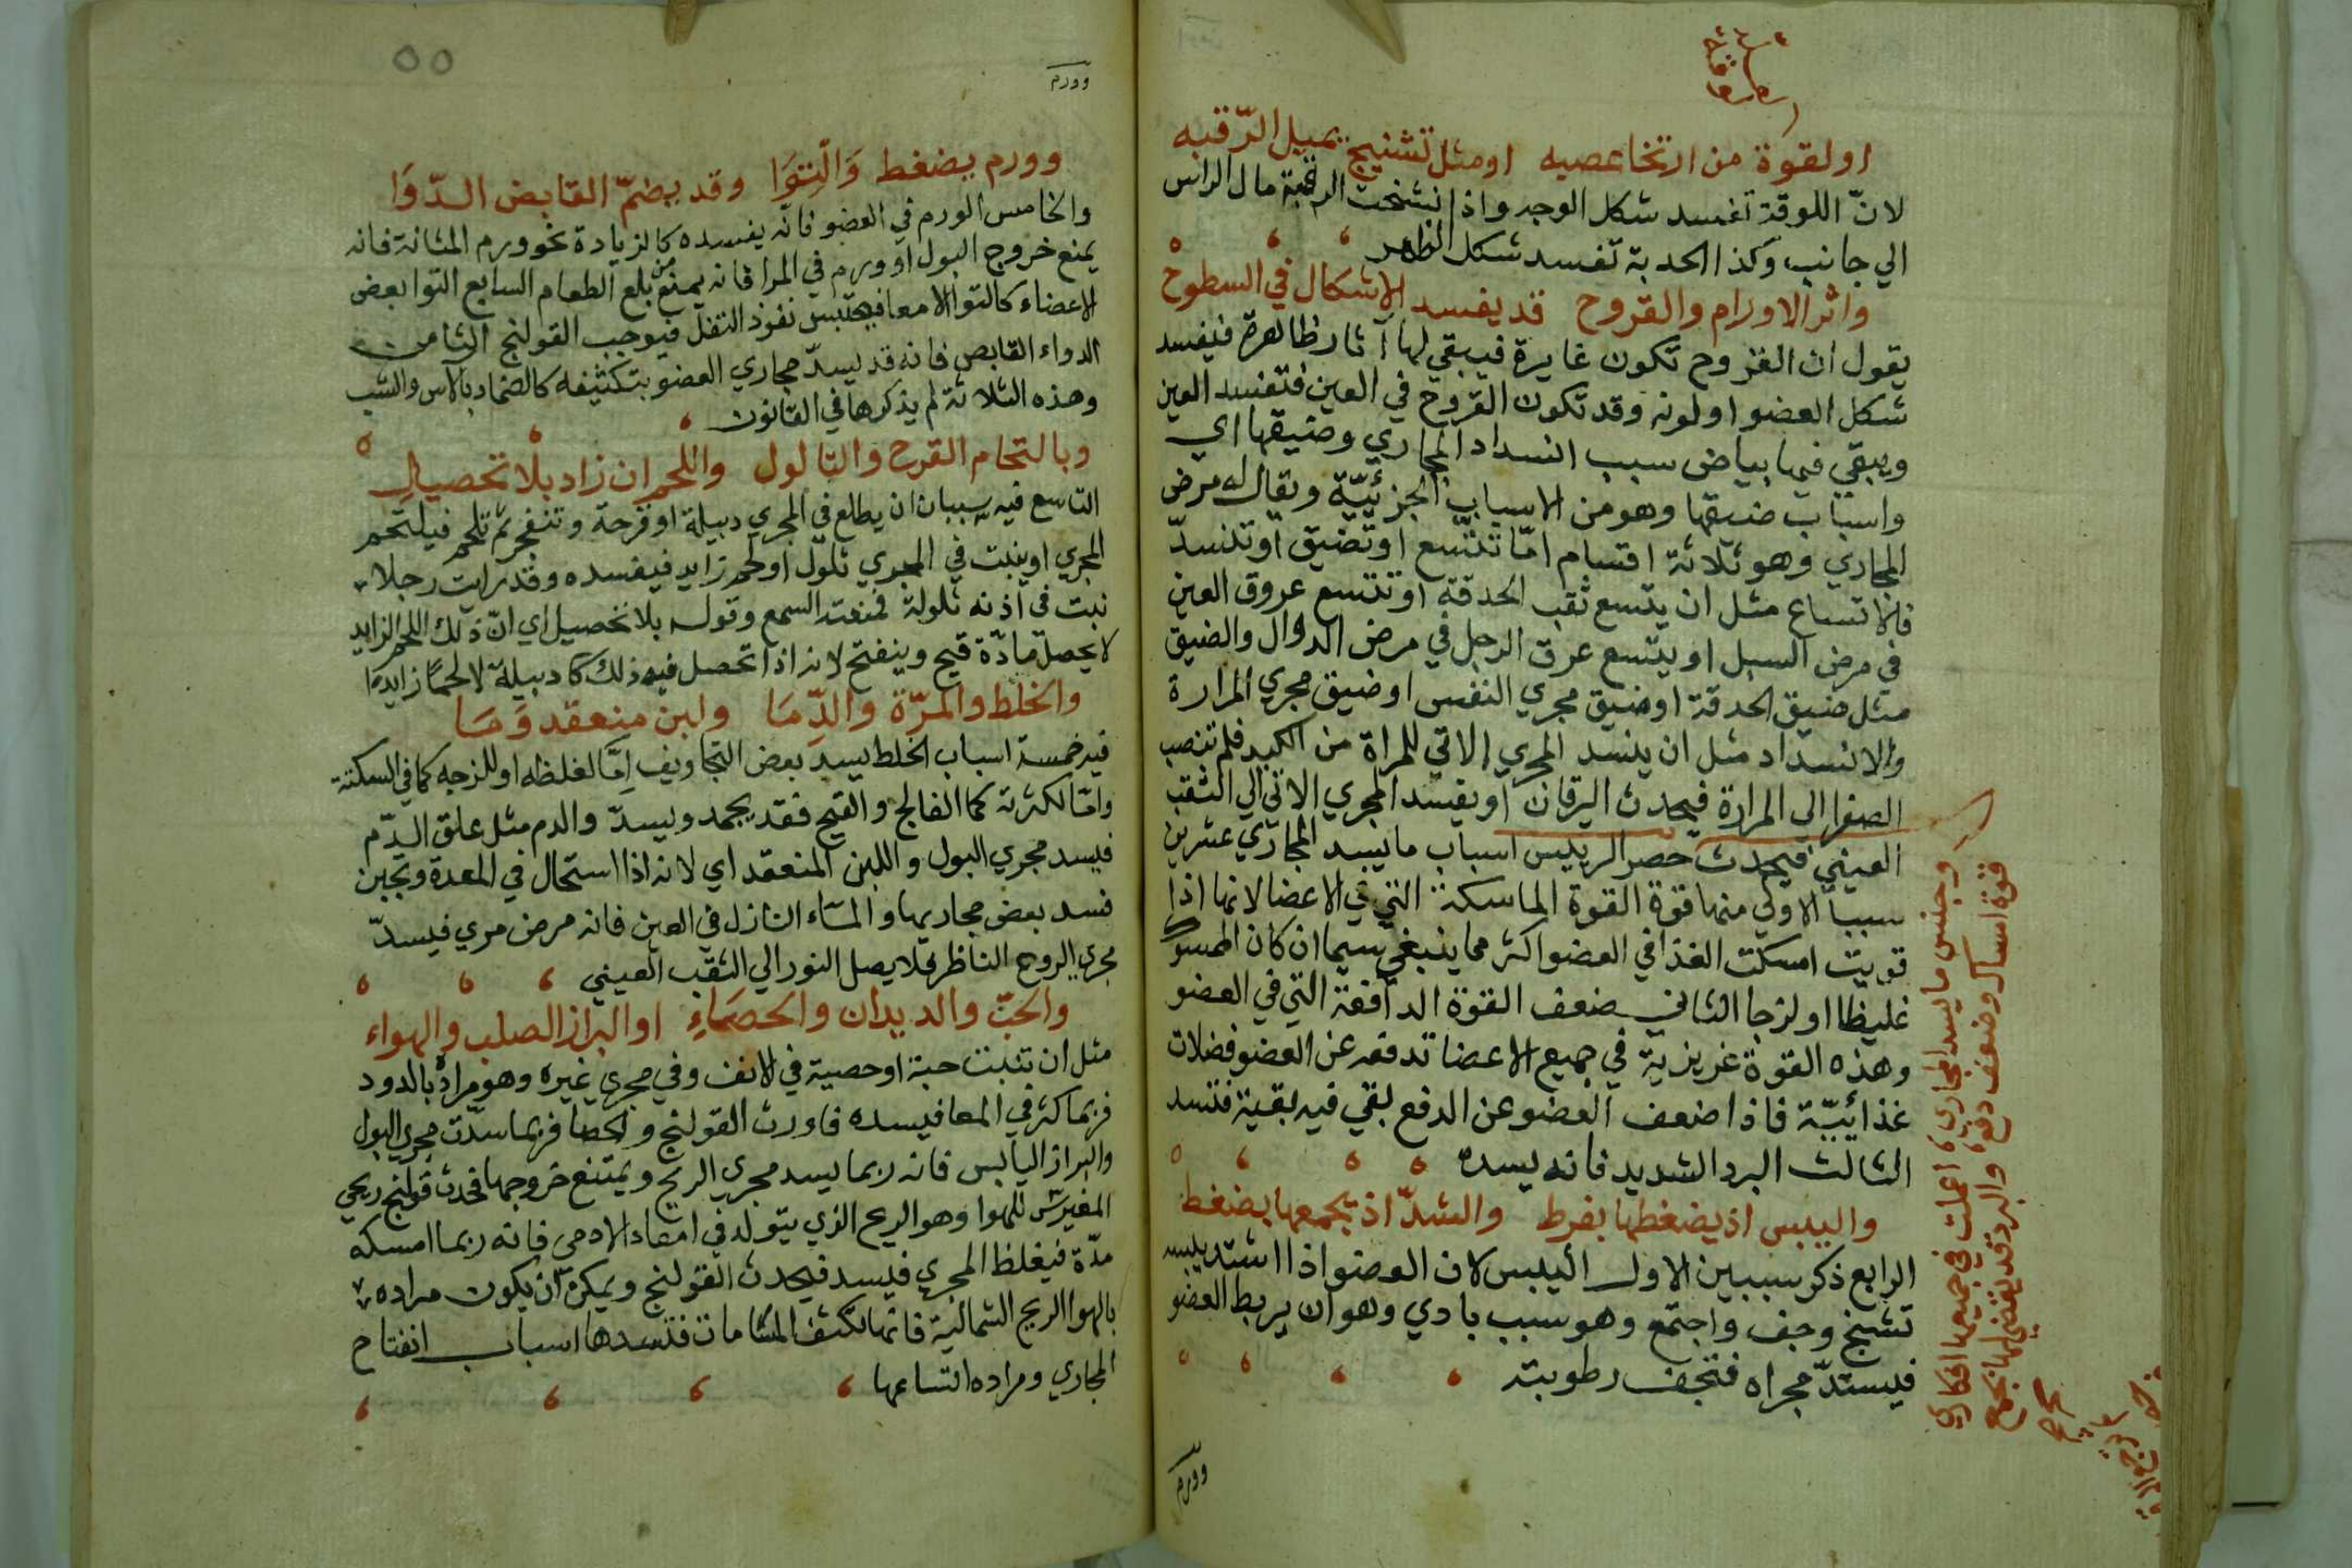 او لقوة من ارتخا عصبه او مثل تشنيج يميل الرّقبه
لانّ اللوقة تفسد شكل الوجه واذا تشنجت الرقبة مال الراس
الي جانب وكذا الحدبة تفسد شكل الظهر
واثر الاورام والقروح قد يفسد الاشكال في السطوح
يقول ان القروح تكون غايرة فيبقي لها آثار ظاهرة فيفسد
شكل العضو او لونه وقد تكون القروح في العين فتفسد العين
ويبقي فيها بياض سبب انسداد المجاري وضيقها اي
واسباب ضيقها وهو من الاسباب الجزئيّة ويقال له مرض
المجاري وهو ثلاثة اقسام امّا تتّسع او تضيق او تنسدّ
فالاتساع مثل ان يتسع ثقب الحدقة او تتسع عروق العين
في مرض السبل او يتّسع عرق الرجل في مرض الدوال والضيق
مثل ضيق الحدقة او ضيق مجري النفس او ضيق مجري المرارة
والانسداد مثل ان ينسد المجري الاتي للمراة من الكبد فلم تنصب
الصفرا الي المرارة فيحدث اليرقان او يفسد المجري الاتي الي الثقب
العيني فيحدث حصر الرييس اسباب ما يسد المجاري عشرين
سببا الاولي منها قوة القوة الماسكة التي في الاعضا لانها اذا
قويت امسكت الغذا في العضو اكثر مما ينبغي سيما ان كان
غليظا او لزجا الثاني ضعف القوة الدافعة التي في العضو
وهذه القوة غريزية في جميع الاعضا تدفعه عن العضو فضلات
غذائيّة فاذا ضعف العضو عن الدفع بقي فيه بقية فتسد
الثالث البرد الشديد فانه يسده
واليبس اذ يضغطها بفرط والشدّ اذ يجمعها بضغط
الرابع ذكر سببين الاول اليبس لان العضو اذا اشتد يبسه
تشنج وجف واجتمع وهو سبب بادي وهو ان يربط العضو
فيستدّ مجراه فتجف رطوبته
وجنس ما يسد المجاري اعملت في جميعها افكاري
قوة امساك وضعف دفع والبرد قد يغشي لها بجمع
وورم
٥٥
وورم
وورم يضغط وَالْتِوَا وقد يضمّ القابض الدّوَا
والخامس الورم في العضو فانه يفسده كالزيادة نحو ورم المثانة فانه
يمنع خروج البول او ورم في المرا فانه يمنع من بلع الطعام السابع التوا بعض
الاعضاء كالتوا الامعا فيحتبس نفوذ الثفل فيوجب القولنج الثامن
الدواء القابض فانه قد يسدّ مجاري العضو بتكثيفه كالضماد بالاس والشب
وهذه الثلاثة لم يذكرها في القانون
وبالتحام القرح والثالول واللحم ان زاد بلا تحصيل
التاسع فيه سببان ان يطلع في المجري دبيلة او قرحة وتنفجر ثم تلحم فيلتحم
المجري او ينبت في المجري ثلول او لحم زايد فيفسده وقد رايت رجلا
نبت في اذنه ثلولة فمنعته السمع وقوله بلا تحصيل اي انّ ذلك اللحم الزايد
لا يحصل مادّة قيح وينفتح لانه اذا تحصل فيه ذلك كا دبيلة لا لحمًا زايدًا
والخلط والمرّة والدِّمَا ولبن منعقد وَمَا
فيه خمسة اسباب الخلط يسد بعض التجاويف اِمَّا لغلظه او للزجه كما في السكتة
وامّا لكثرته كما الفالج والقيح فقد يجمد ويسدّ والدم مثل علق الدّم
فيسد مجري البول واللبن المنعقد اي لانه اذا استحال في المعدة وتجبن
فسد بعض مجاريها والمآء النازل في العين فانه مرض مري فيسدّ
مجري الروح الناظر فلا يصل النور الي الثقب العيني
والحبّ والديدان والحصَاءِ او البراز الصلب والهواء
مثل ان تنبت حبة او حصية في الانف وفي مجري غيره وهو مراده بالدود
فربما كثر في المعا فيسده فاورث القولنج والحصا فربما سدّت مجري البول
والبراز اليابس فانه ربما يسد مجري الريح ويمتنع خروجها فحدث قولنج ريحي
للهوا وهو الريح الذي يتولد في امعاد الادمي فانه ربما امسكه
مدّة فيغلظ المجري فيسد فيحدث القولنج ويمكن ان يكون مراده
بالهوا الريح الشمالية فانها تكثف المشامات فتسدها اسباب انفتاح
المجاري ومراده اتساعها